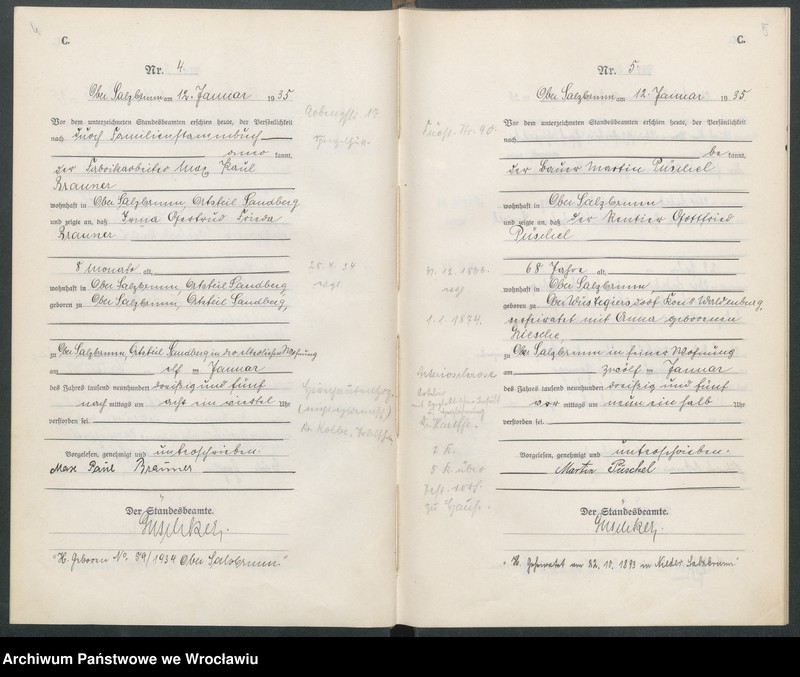 C.
Nr. 4.
Ober Salzbrunn am 12. Januar 1935
Vor dem unterzeichneten Standesbeamten erschien heute, der Persönlichkeit
nach durch Familienstammbuch
kannt,
der Fabrikarbeiter Max Paul
Brauner
wohnhaft in Ober Salzbrunn, Ortsteil Sandberg
und zeigte an, daß Irma Gertrud Frieda
Brauner
8 Monate alt,
wohnhaft in Ober Salzbrunn, Ortsteil Sandberg,
geboren zu Ober Salzbrunn, Ortsteil Sandberg,
zu Ober Salzbrunn, Ortsteil Sandberg in der elterlichen Wohnung
am elf ten Januar
des Jahres tausend neunhundert dreißig und fünf
nach mittags um acht ein viertel Uhr
verstorben sei.
Vorgelesen, genehmigt und unterschrieben.
Max Paul Brauner
Der Standesbeamte.
"H. Geboren No 39/1934 Ober Salzbrunn."
25. 4. 34
Gehirnhautentzdg.
Dr. Kolbe,
C.
5
Nr. 5.
Ober Salzbrunn am 12. Januar 1935
Vor dem unterzeichneten Standesbeamten erschien heute, der Persönlichkeit
nach
be kannt,
der Bauer Martin Püschel
wohnhaft in Ober Salzbrunn
und zeigte an, daß der Rentier Gottfried
Püschel
68 Jahre alt,
wohnhaft in Ober Salzbrunn,
geboren zu Ober Wüstegiersdorf Kreis Waldenburg,
verheiratet mit Anna geborenen
Niesche,
zu Ober Salzbrunn in seiner Wohnung
am zwölf ten Januar
des Jahres tausend neunhundert dreißig und fünf
vor mittags um neun ein halb Uhr
verstorben sei.
Vorgelesen, genehmigt und unterschrieben.
Martin Püschel
Der Standesbeamte.
1.1.1874.
Arteriosklerose
2 K.
5 K über
zu Hause.
"H. Geheiratet am 22. 10. 1893 in Nieder Salzbrunn"
Archiwum Państwowe we Wrocławiu